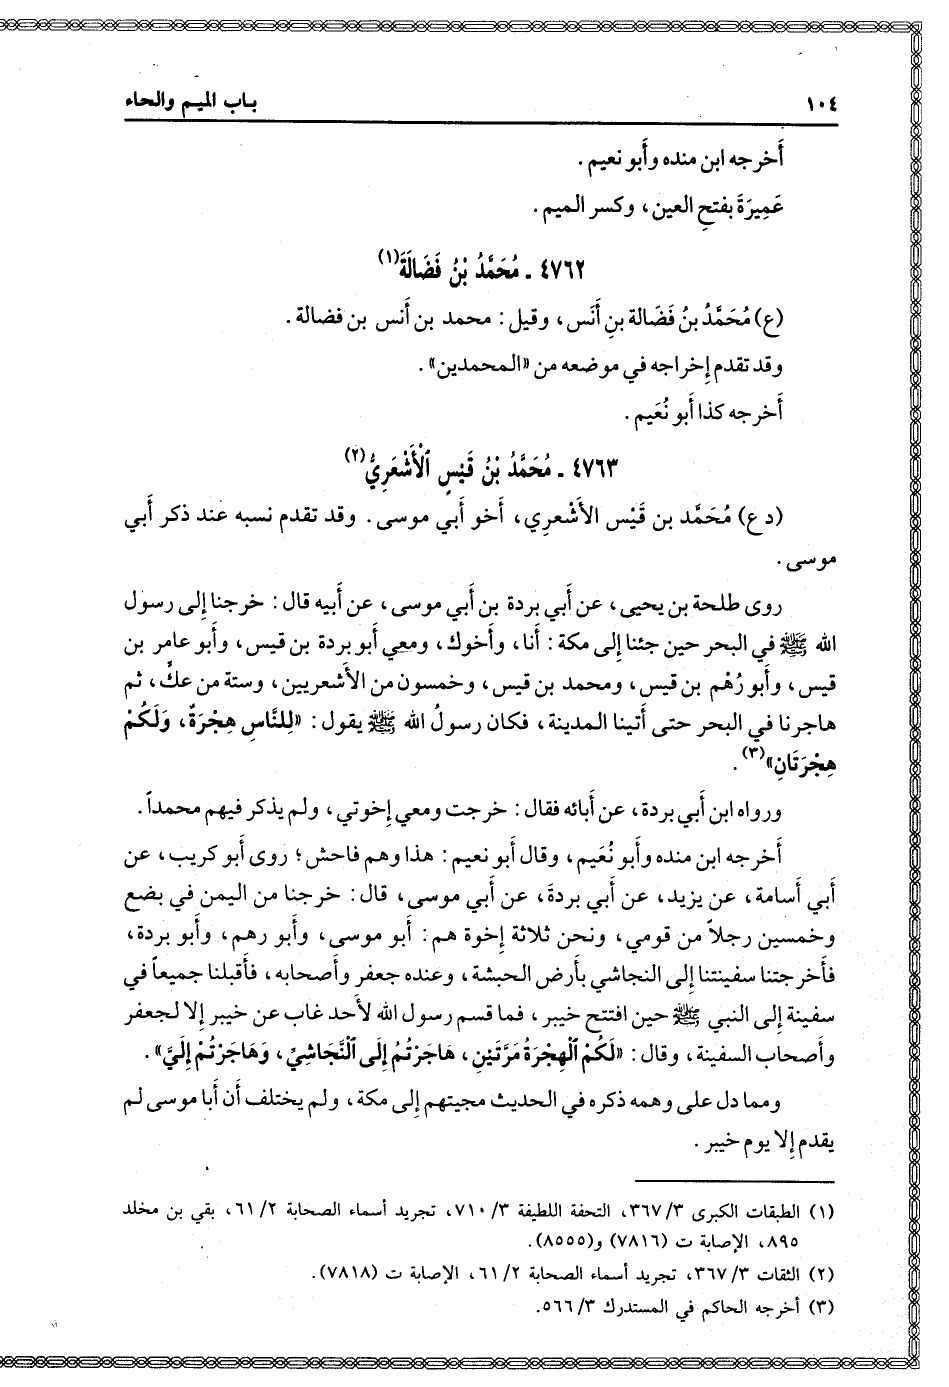 ١٠٤ باب الميم والحاء
أَخرجه ابن منده وأَبو نعيم.
عَمِيرَةَ بفتح العين، وكسر الميم.
٤٧٦٢ ـ مُحَمَّدُ بْنُ فَضَالَةَ(١)
(ع) مُحَمَّدُ بنُ فَضَالة بنِ أَنَس، وقيل: محمد بن أَنس بن فضالة.
وقد تقدم إِخراجه في موضعه من «المحمدين».
أَخرجه كذا أَبو نُعَيم.
٤٧٦٣ ـ مُحَمَّدُ بْنُ قَيْسٍ ٱلْأَشْعَرِيُّ(٢)
(د ع) مُحَمَّد بن قَيْس الأَشْعرِي، أَخو أَبي موسى. وقد تقدم نسبه عند ذكر أَبي
موسى.
روى طلحة بن يحيى، عن أَبي بردة بن أَبي موسى، عن أَبيه قال: خرجنا إِلى رسول
الله ﷺ في البحر حين جئنا إِلى مكة: أَنا، وأَخوك، ومعي أَبو بردة بن قيس، وأَبو عامر بن
قيس، وأَبو رُهْم بن قيس، ومحمد بن قيس، وخمسون من الأَشعريين، وستة من عكٍّ، ثم
هاجرنا في البحر حتى أَتينا المدينة، فكان رسولُ الله ﷺ يقول: «لِلنَّاسِ هِجْرَةٌ، وَلَكُمْ
هِجْرَتَانِ»(٣).
ورواه ابن أَبي بردة، عن أَبائه فقال: خرجت ومعي إِخوتي، ولم يذكر فيهم محمداً.
أَخرجه ابن منده وأَبو نُعَيم، وقال أَبو نعيم: هذا وهم فاحش؛ روى أَبو كريب، عن
أَبي أَسامة، عن يزيد، عن أَبي بردةَ، عن أَبي موسى، قال: خرجنا من اليمن في بضع
وخمسين رجلاً من قومي، ونحن ثلاثة إِخوة هم: أَبو موسى، وأَبو رهم، وأَبو بردة،
فأَخرجتنا سفينتنا إِلى النجاشي بأَرض الحبشة، وعنده جعفر وأَصحابه، فأَقبلنا جميعاً في
سفينة إِلى النبي ﷺ حين افتتح خيبر، فما قسم رسول الله لأَحد غاب عن خيبر إِلا لجعفر
وأَصحاب السفينة، وقال: «لَكُمْ ٱلْهِجْرَةُ مَرَّتَيْنِ، هَاجَرْتُمْ إِلَى ٱلنَّجَاشِيِّ، وَهَاجَرْتُمْ إِلَيَّ».
ومما دل على وهمه ذكره في الحديث مجيتهم إِلى مكة، ولم يختلف أَن أَبا موسى لم
يقدم إِلا يوم خيبر.
(١) الطبقات الكبرى ٣/ ٣٦٧، التحفة اللطيفة ٣/ ٧١٠، تجريد أسماء الصحابة ٢/ ٦١، بقي بن مخلد
٨٩٥، الإصابة ت (٧٨١٦) و(٨٥٥٥).
(٢) الثقات ٣/ ٣٦٧، تجريد أسماء الصحابة ٢/ ٦١، الإصابة ت (٧٨١٨).
(٣) أخرجه الحاكم في المستدرك ٣/ ٥٦٦.